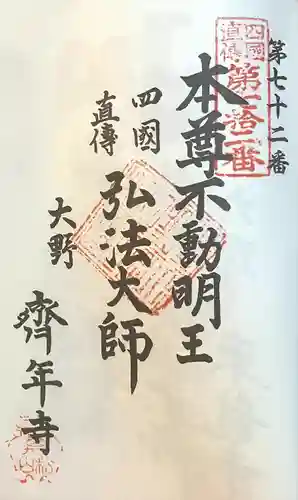 第七十二番
四國
直傳
第一拾二番
本尊不動明王
四國
直傳
弘法大師
大野
齊年寺